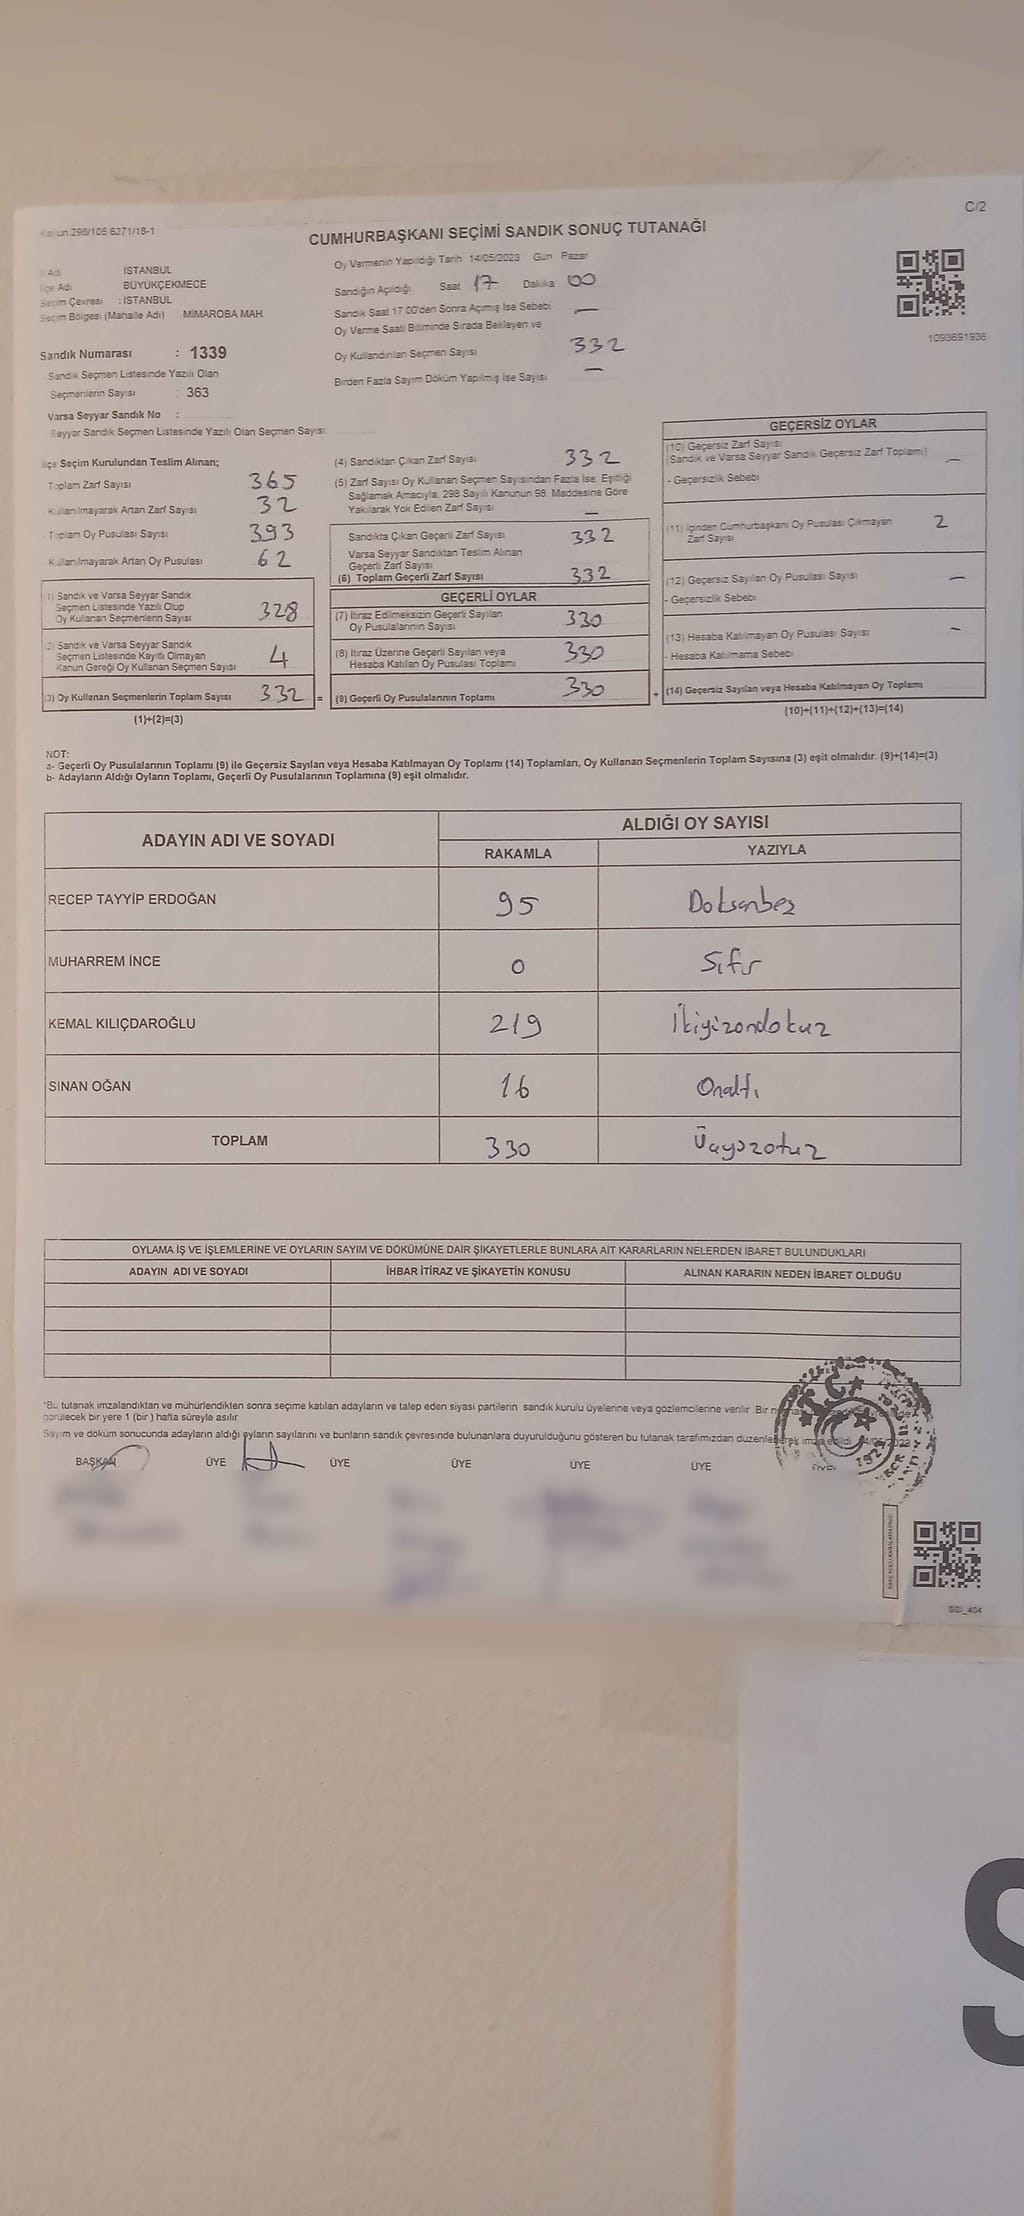 C/2
Kanun 298/105 6271/18-1
CUMHURBAŞKANI SEÇİMİ SANDIK SONUÇ TUTANAĞI
İl Adı İSTANBUL
İlçe Adı BÜYÜKÇEKMECE
Seçim Çevresi : İSTANBUL
Seçim Bölgesi (Mahalle Adı) MİMAROBA MAH.
Sandık Numarası : 1339
Sandık Seçmen Listesinde Yazılı Olan
Seçmenlerin Sayısı : 363
Varsa Seyyar Sandık No :
Seyyar Sandık Seçmen Listesinde Yazılı Olan Seçmen Sayısı
Oy Vermenin Yapıldığı Tarih 14/05/2023 Gün Pazar
Sandığın Açıldığı Saat 17 Dakika 00
Sandık Saat 17 00'den Sonra Açımış İse Sebebi —
Oy Verme Saati Bitiminde Sırada Bekleyen ve
Oy Kullandırılan Seçmen Sayısı 332
Birden Fazla Sayım Döküm Yapılmış İse Sayısı —
1093691936
İlçe Seçim Kurulundan Teslim Alınan;
Toplam Zarf Sayısı 365
Kullanılmayarak Artan Zarf Sayısı 32
Toplam Oy Pusulası Sayısı 393
Kullanılmayarak Artan Oy Pusulası 62
1) Sandık ve Varsa Seyyar Sandık
Seçmen Listesinde Yazılı Olup
Oy Kullanan Seçmenlerin Sayısı 328
2) Sandık ve Varsa Seyyar Sandık
Seçmen Listesinde Kayıtlı Olmayan
Kanun Gereği Oy Kullanan Seçmen Sayısı 4
(3) Oy Kullanan Seçmenlerin Toplam Sayısı 332 =
(1)+(2)=(3)
(4) Sandıktan Çıkan Zarf Sayısı 332
(5) Zarf Sayısı Oy Kullanan Seçmen Sayısından Fazla İse, Eşitliği
Sağlamak Amacıyla, 298 Sayılı Kanunun 98. Maddesine Göre
Yakılarak Yok Edilen Zarf Sayısı —
Sandıkta Çıkan Geçerli Zarf Sayısı 332
Varsa Seyyar Sandıktan Teslim Alınan
Geçerli Zarf Sayısı
(6) Toplam Geçerli Zarf Sayısı 332
GEÇERLİ OYLAR
(7) İtiraz Edilmeksizin Geçerli Sayılan
Oy Pusulalarının Sayısı 330
(8) İtiraz Üzerine Geçerli Sayılan veya
Hesaba Katılan Oy Pusulası Toplamı 330
(9) Geçerli Oy Pusulalarının Toplamı 330 +
GEÇERSİZ OYLAR
(10) Geçersiz Zarf Sayısı
(Sandık ve Varsa Seyyar Sandık Geçersiz Zarf Toplamı) —
- Geçersizlik Sebebi
(11) İçinden Cumhurbaşkanı Oy Pusulası Çıkmayan
Zarf Sayısı 2
(12) Geçersiz Sayılan Oy Pusulası Sayısı —
- Geçersizlik Sebebi
(13) Hesaba Katılmayan Oy Pusulası Sayısı —
- Hesaba Katılmama Sebebi
(14) Geçersiz Sayılan veya Hesaba Katılmayan Oy Toplamı
(10)+(11)+(12)+(13)=(14)
NOT:
a- Geçerli Oy Pusulalarının Toplamı (9) ile Geçersiz Sayılan veya Hesaba Katılmayan Oy Toplamı (14) Toplamları, Oy Kullanan Seçmenlerin Toplam Sayısına (3) eşit olmalıdır. (9)+(14)=(3)
b- Adayların Aldığı Oyların Toplamı, Geçerli Oy Pusulalarının Toplamına (9) eşit olmalıdır.
ADAYIN ADI VE SOYADI ALDIĞI OY SAYISI
RAKAMLA YAZIYLA
RECEP TAYYİP ERDOĞAN 95 Doksanbeş
MUHARREM İNCE 0 Sıfır
KEMAL KILIÇDAROĞLU 219 İkiyüzondokuz
SİNAN OĞAN 16 Onaltı
TOPLAM 330 Üçyüzotuz
OYLAMA İŞ VE İŞLEMLERİNE VE OYLARIN SAYIM VE DÖKÜMÜNE DAİR ŞİKAYETLERLE BUNLARA AİT KARARLARIN NELERDEN İBARET BULUNDUKLARI
ADAYIN ADI VE SOYADI İHBAR İTİRAZ VE ŞİKAYETİN KONUSU ALINAN KARARIN NEDEN İBARET OLDUĞU
*Bu tutanak imzalandıktan ve mühürlendikten sonra seçime katılan adayların ve talep eden siyasi partilerin sandık kurulu üyelerine veya gözlemcilerine verilir. Bir
görülecek bir yere 1 (bir) hafta süreyle asılır
Sayım ve döküm sonucunda adayların aldığı oyların sayılarını ve bunların sandık çevresinde bulunanlara duyurulduğunu gösteren bu tutanak tarafımızdan düzenlenerek imza edildi.
BAŞKAN ÜYE ÜYE ÜYE ÜYE ÜYE
T.C.
SSI_404
S